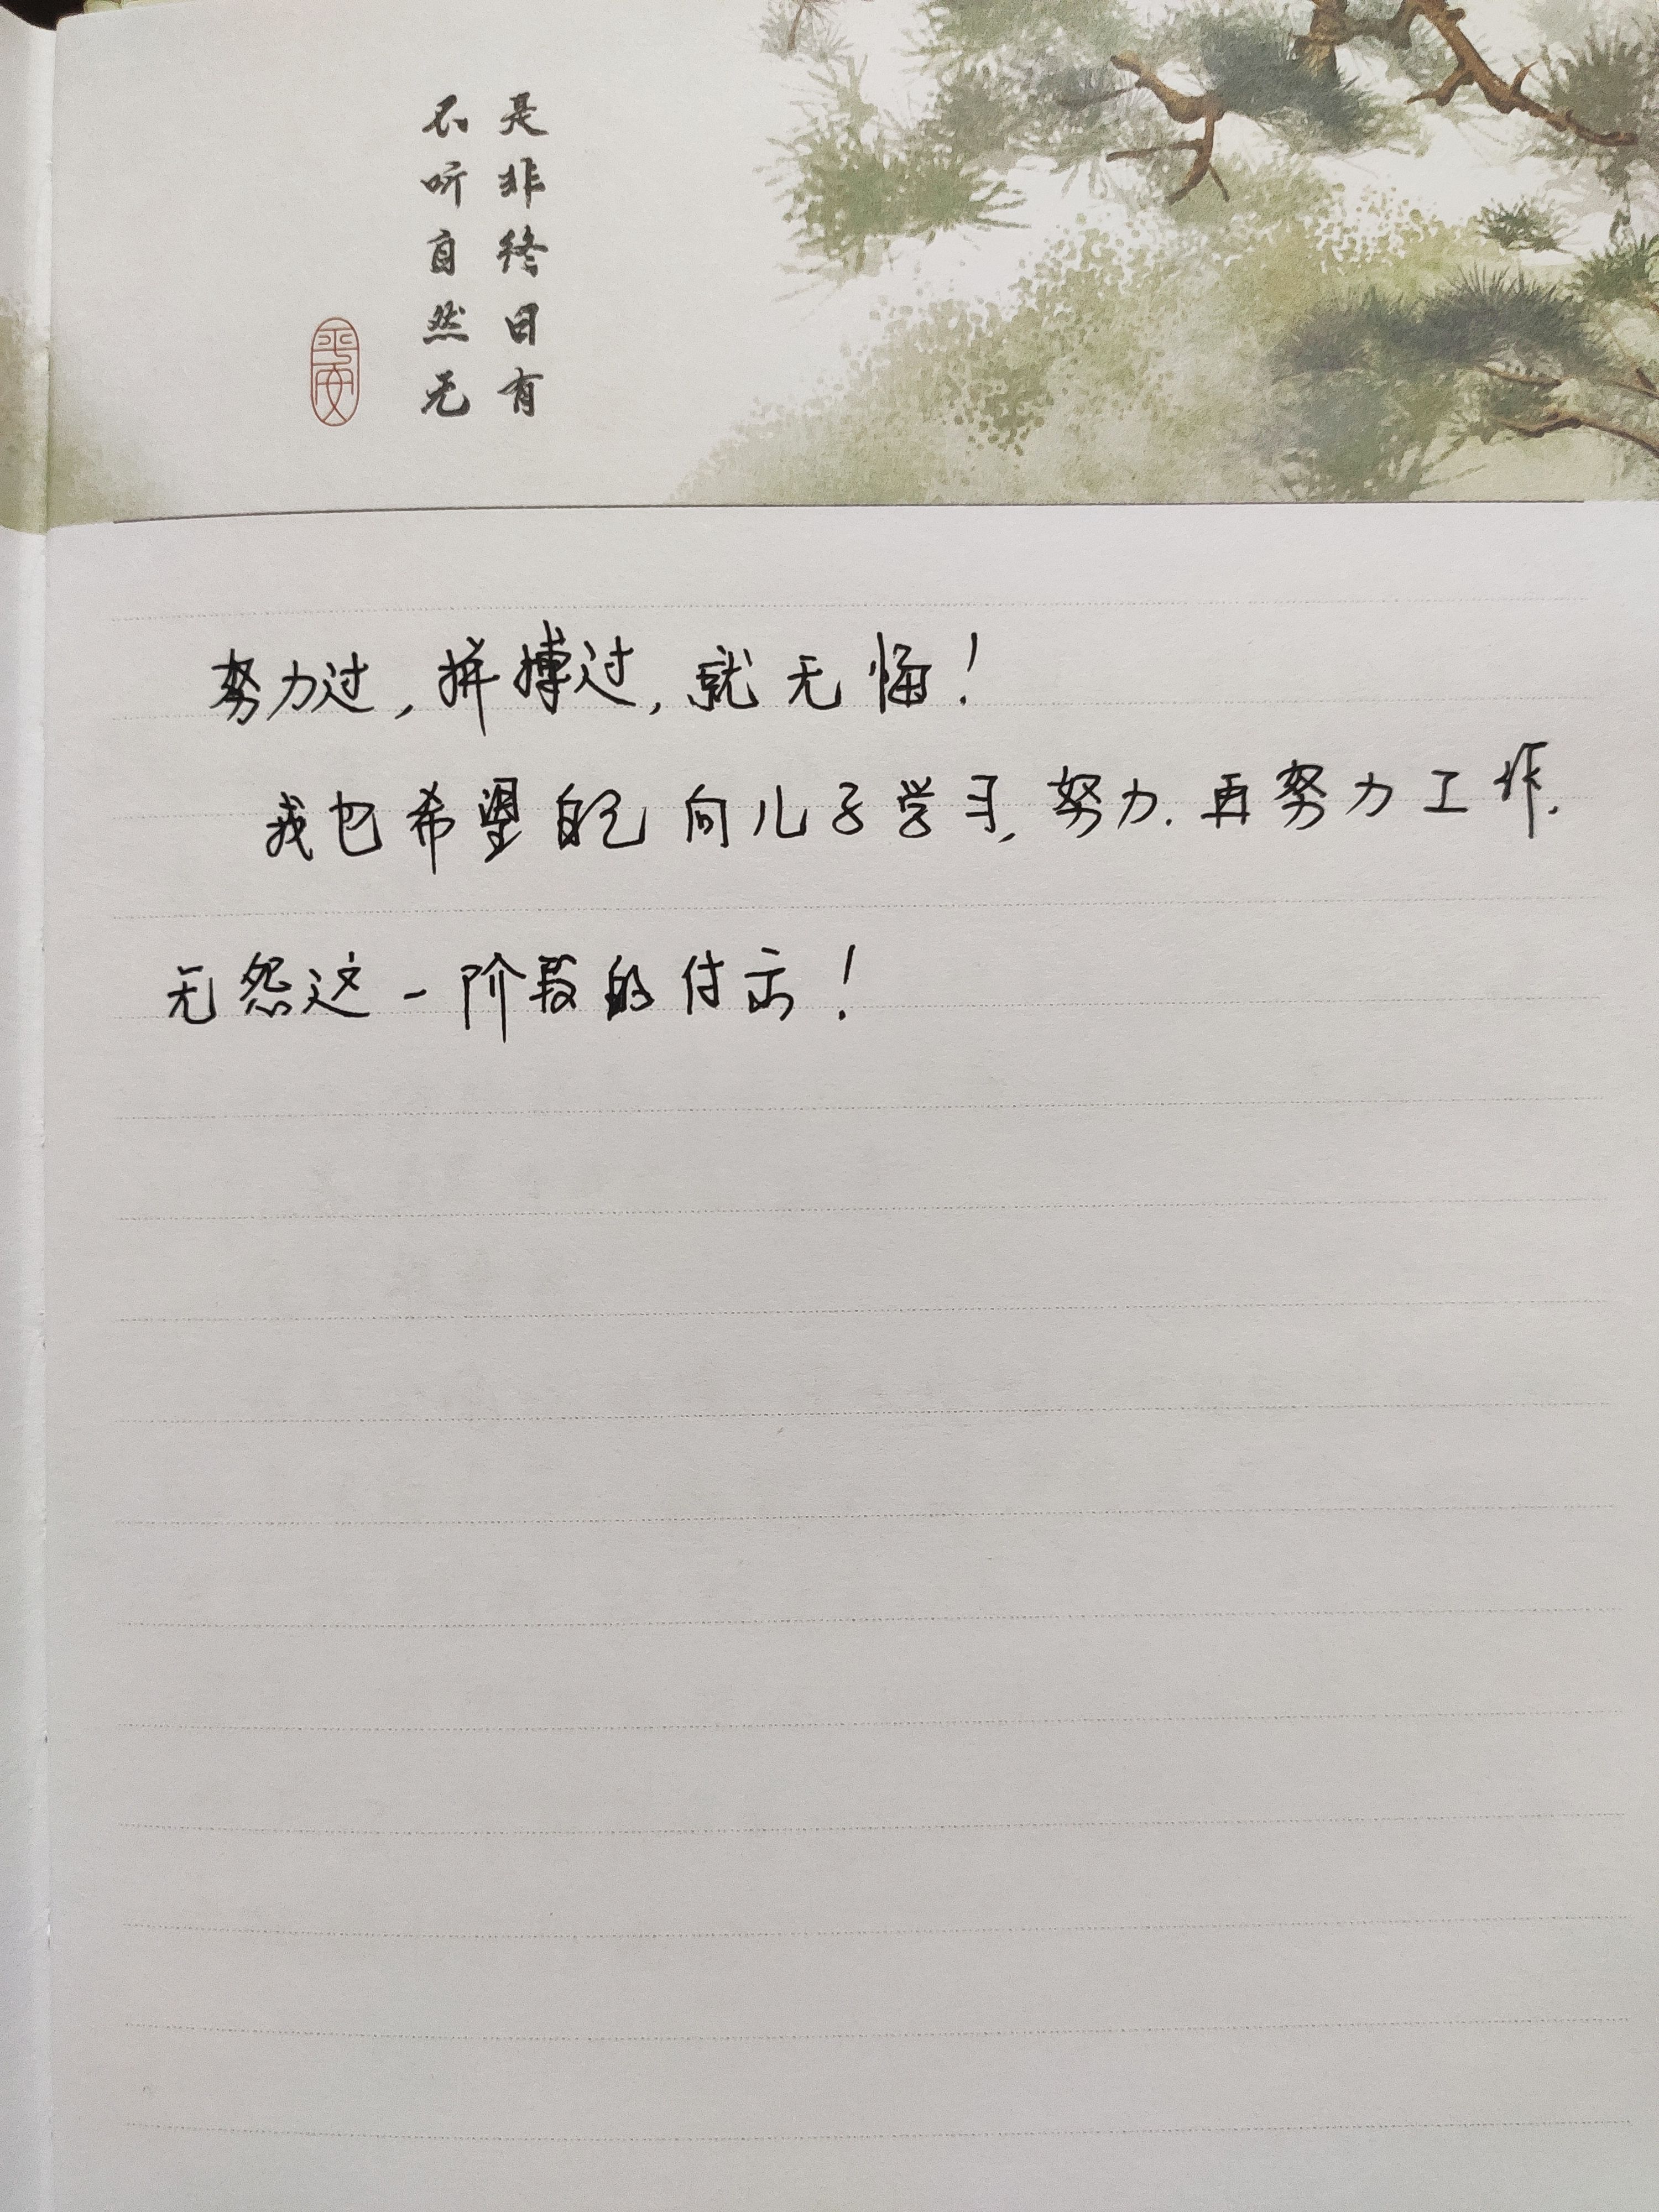 是非终日有
不听自然无
平安
努力过,拼搏过,就无悔!
我也希望自己向儿子学习,努力.再努力工作.
无怨这一阶段的付出!